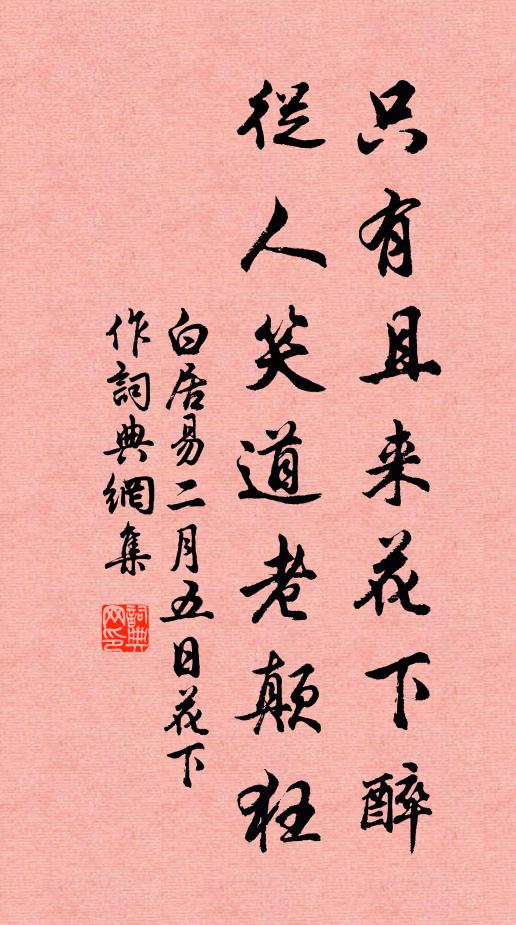 只有且来花下醉
從人笑道老颠狂
白居易二月五日花下
作詞典網集
詞典网印